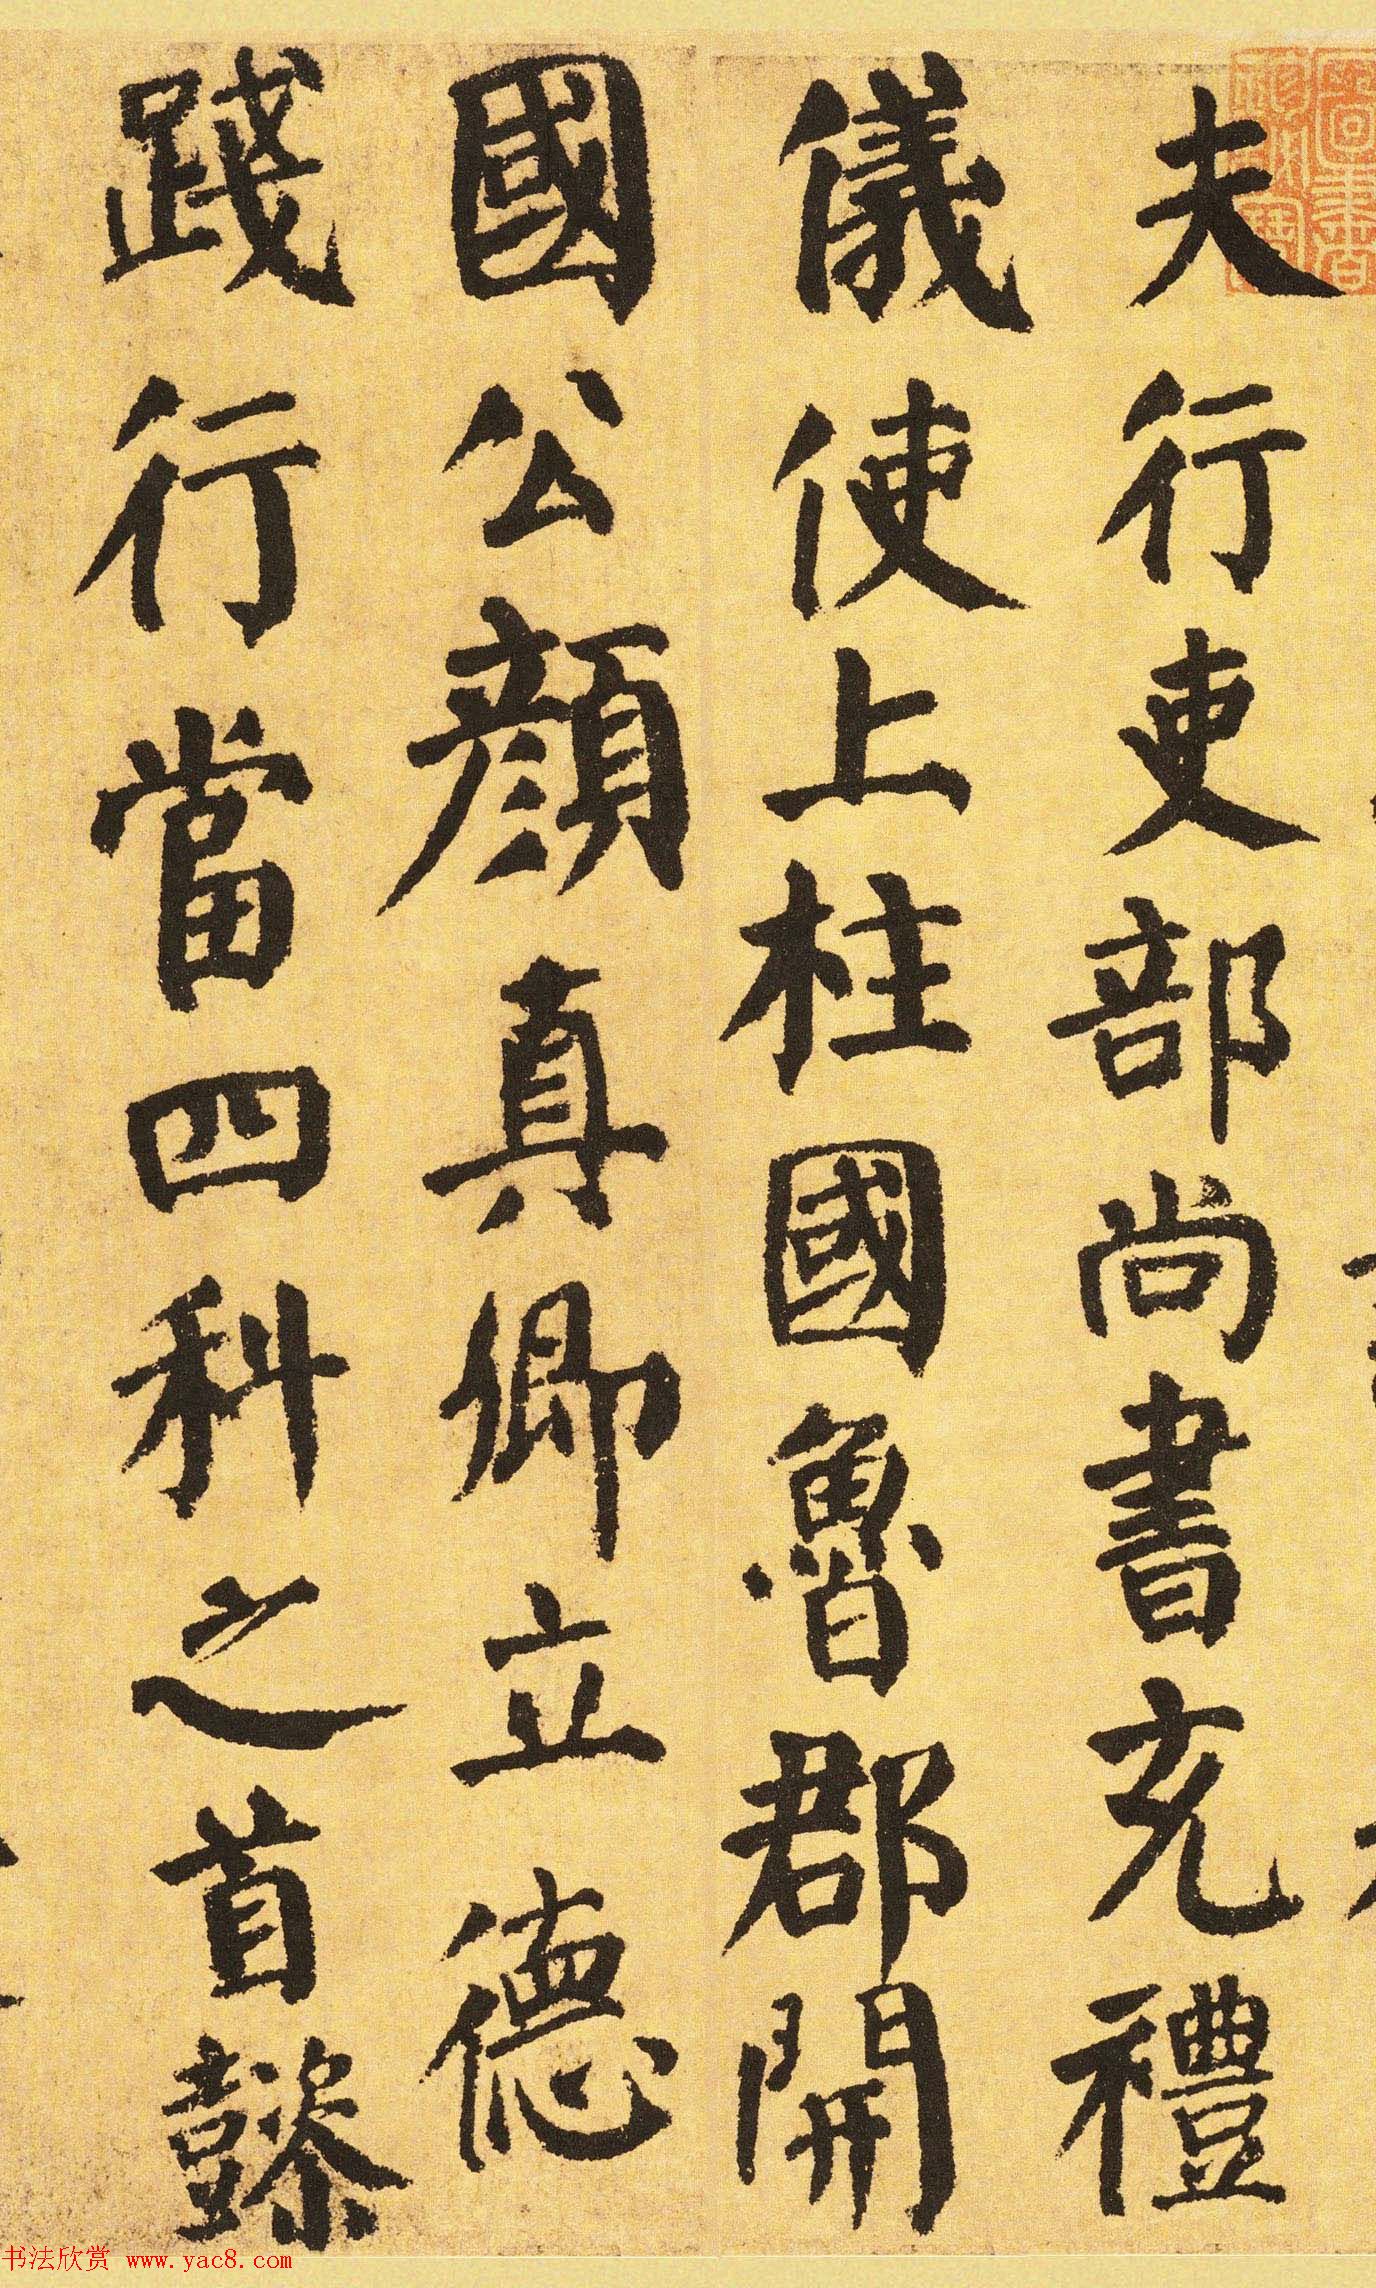 夫行吏部尚書充禮
儀使上柱國魯郡開
國公顏真卿立德
踐行當四科之首懿
书法欣赏 www.yac8.com